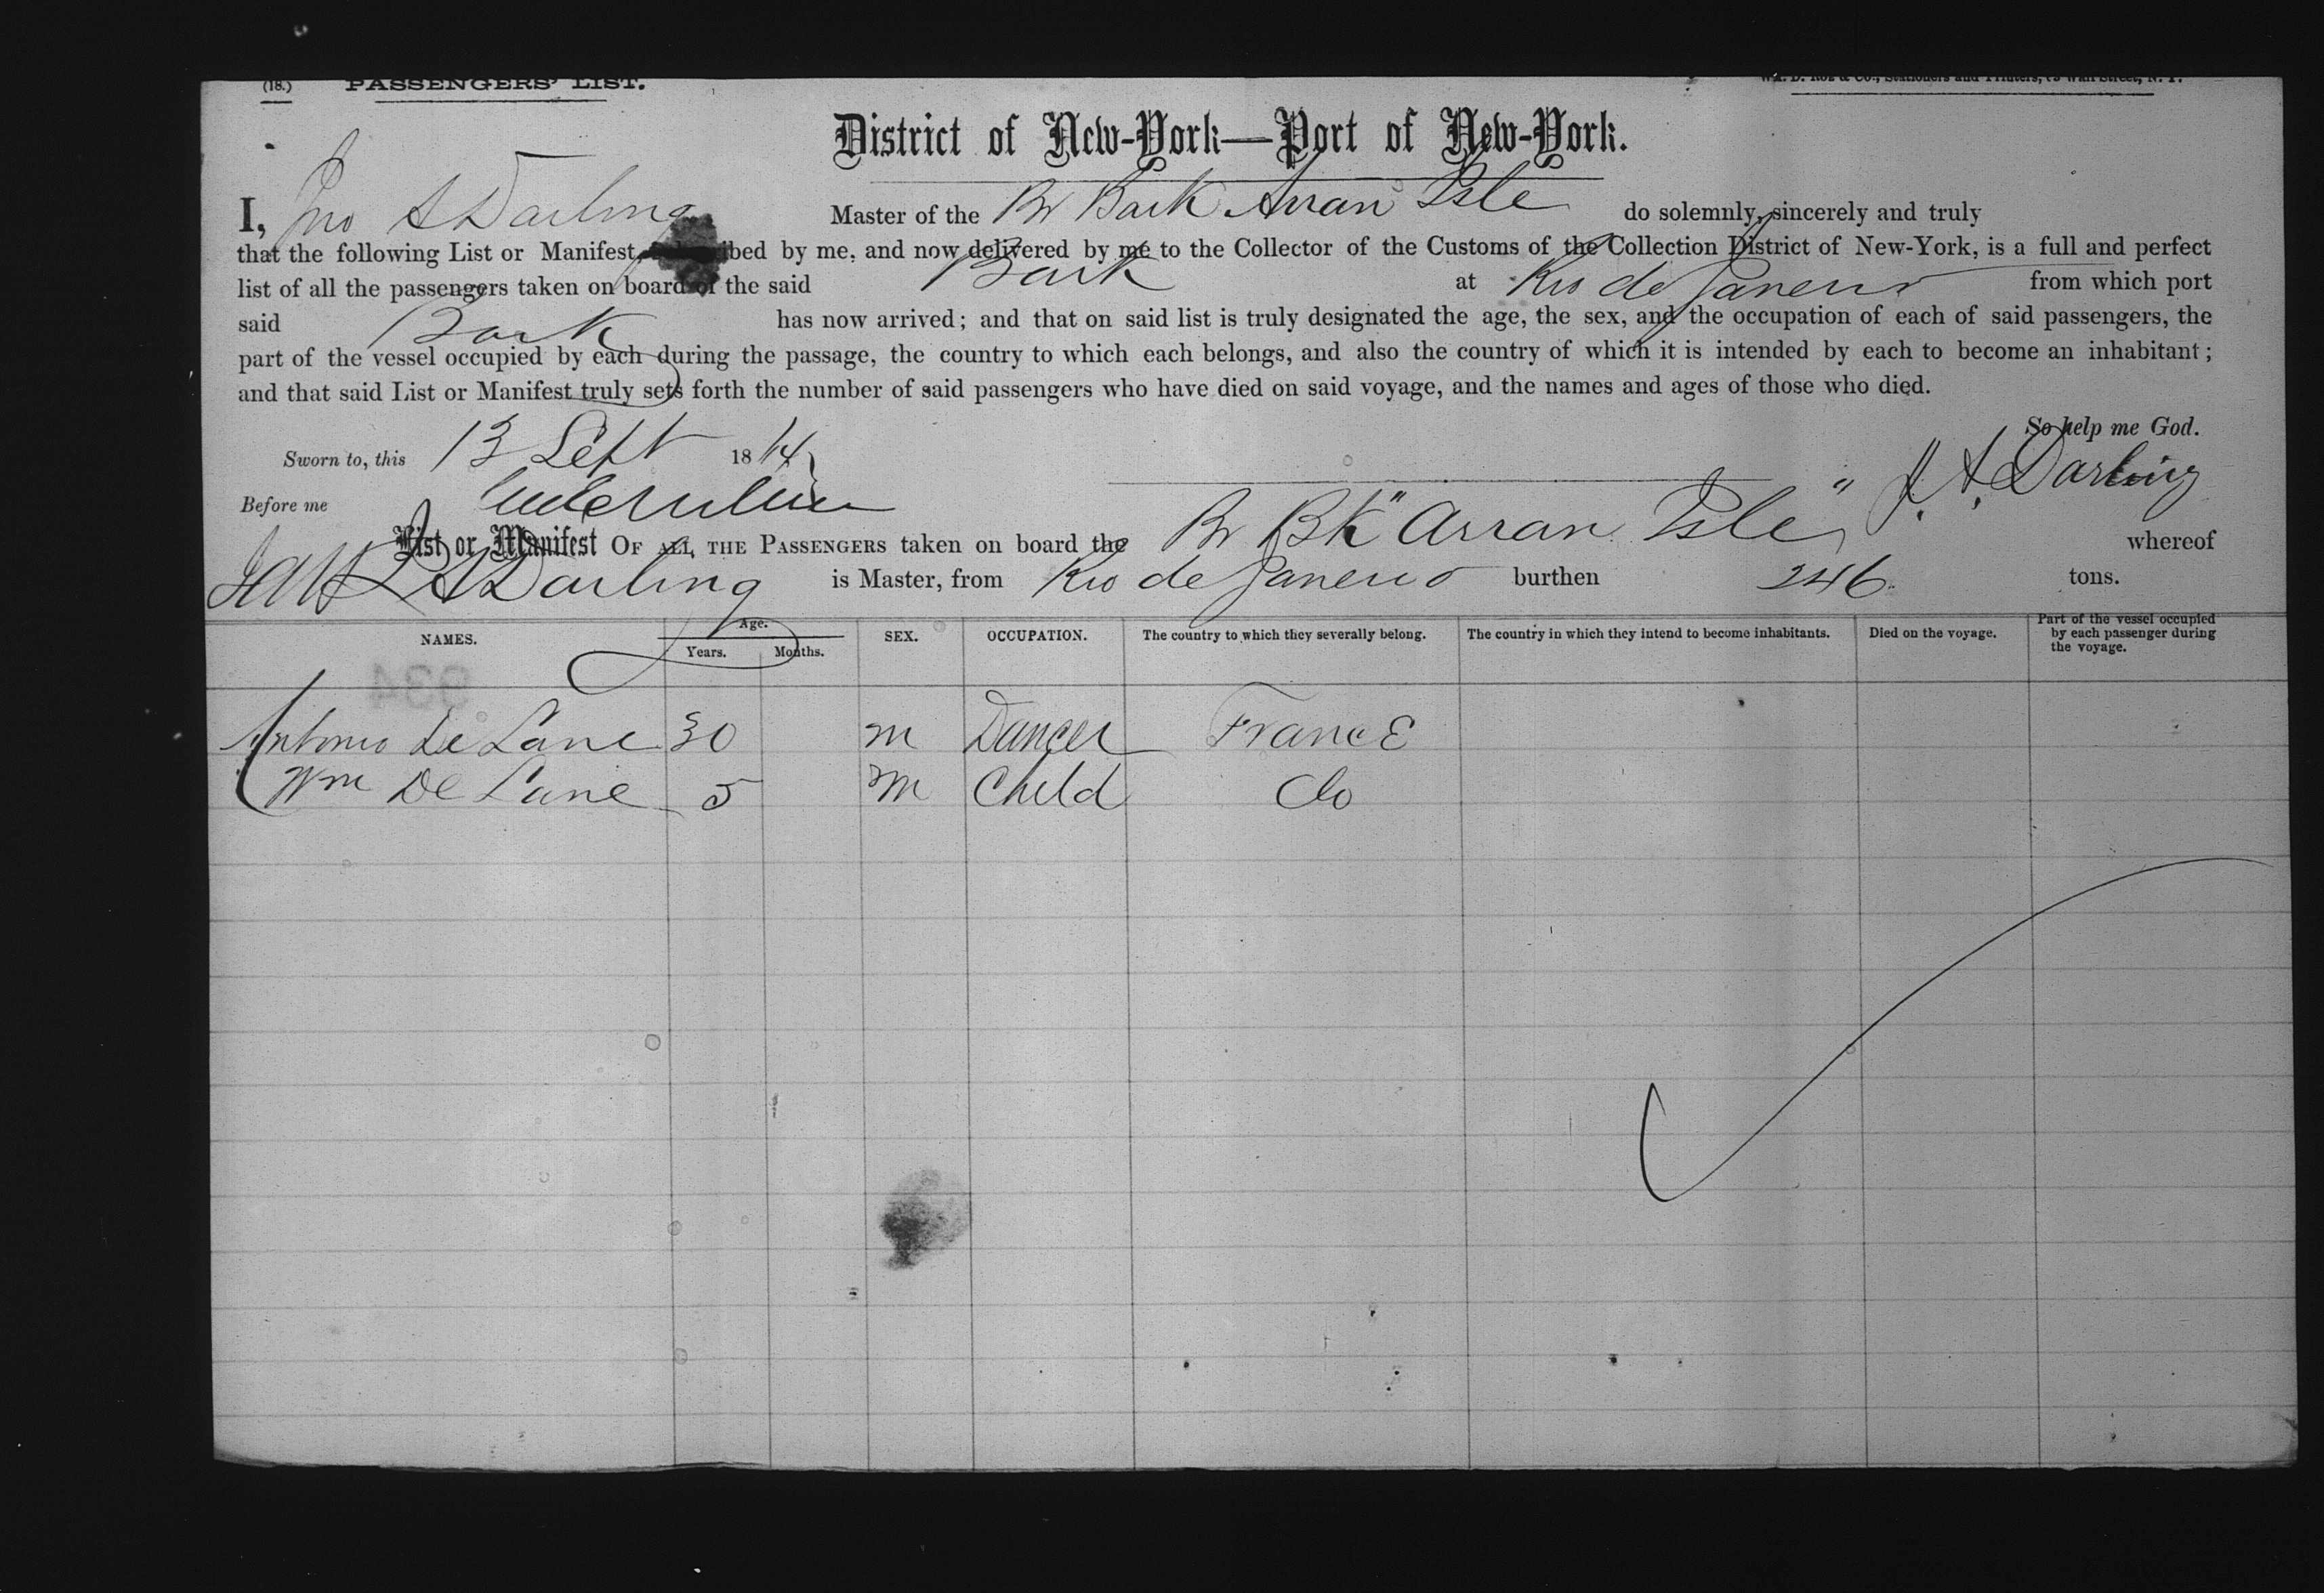 (18.) PASSENGERS' LIST. Wm. D. Roe & Co., Stationers and Printers, Wall Street, N. Y.
District of New-York—Port of New-York.
I, Jno A Darling Master of the Br Bark Arran Isle do solemnly, sincerely and truly
that the following List or Manifest, by me, and now delivered by me to the Collector of the Customs of the Collection District of New-York, is a full and perfect
list of all the passengers taken on board of the said Bark at Rio de Janeiro from which port
said Bark has now arrived; and that on said list is truly designated the age, the sex, and the occupation of each of said passengers, the
part of the vessel occupied by each during the passage, the country to which each belongs, and also the country of which it is intended by each to become an inhabitant;
and that said List or Manifest truly sets forth the number of said passengers who have died on said voyage, and the names and ages of those who died.
So help me God.
Sworn to, this 13 Sept 18 J. A. Darling
Before me
List or Manifest OF ALL THE PASSENGERS taken on board the Br Bk "Arran Isle" whereof
J A Darling is Master, from Rio de Janeiro burthen 246 tons.
NAMES. Age. Years. Months. SEX. OCCUPATION. The country to which they severally belong. The country in which they intend to become inhabitants. Died on the voyage. Part of the vessel occupied by each passenger during the voyage.
934
Antonio De Lane 30 m Dancer France
Wm De Lane 5 m Child do